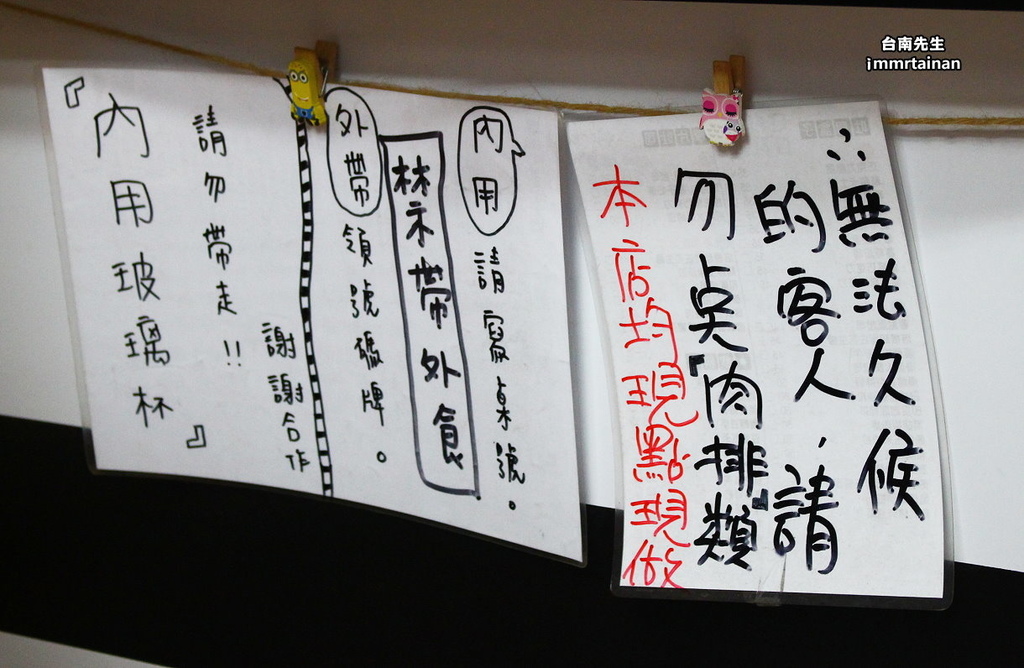 台南先生
immrtainan
∴無法久候
的客人,請
勿奌『肉排類』
本店均現點現做
內用 請寫桌號。
禁帶外食
外帶 領號碼牌。
『內用玻璃杯』
請勿帶走!!
謝謝合作